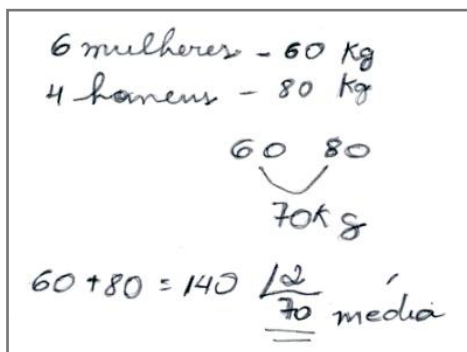 6 mulheres - 60 Kg
4 homens - 80 Kg
60 80
70Kg
60 + 80 = 140 |2
70 média